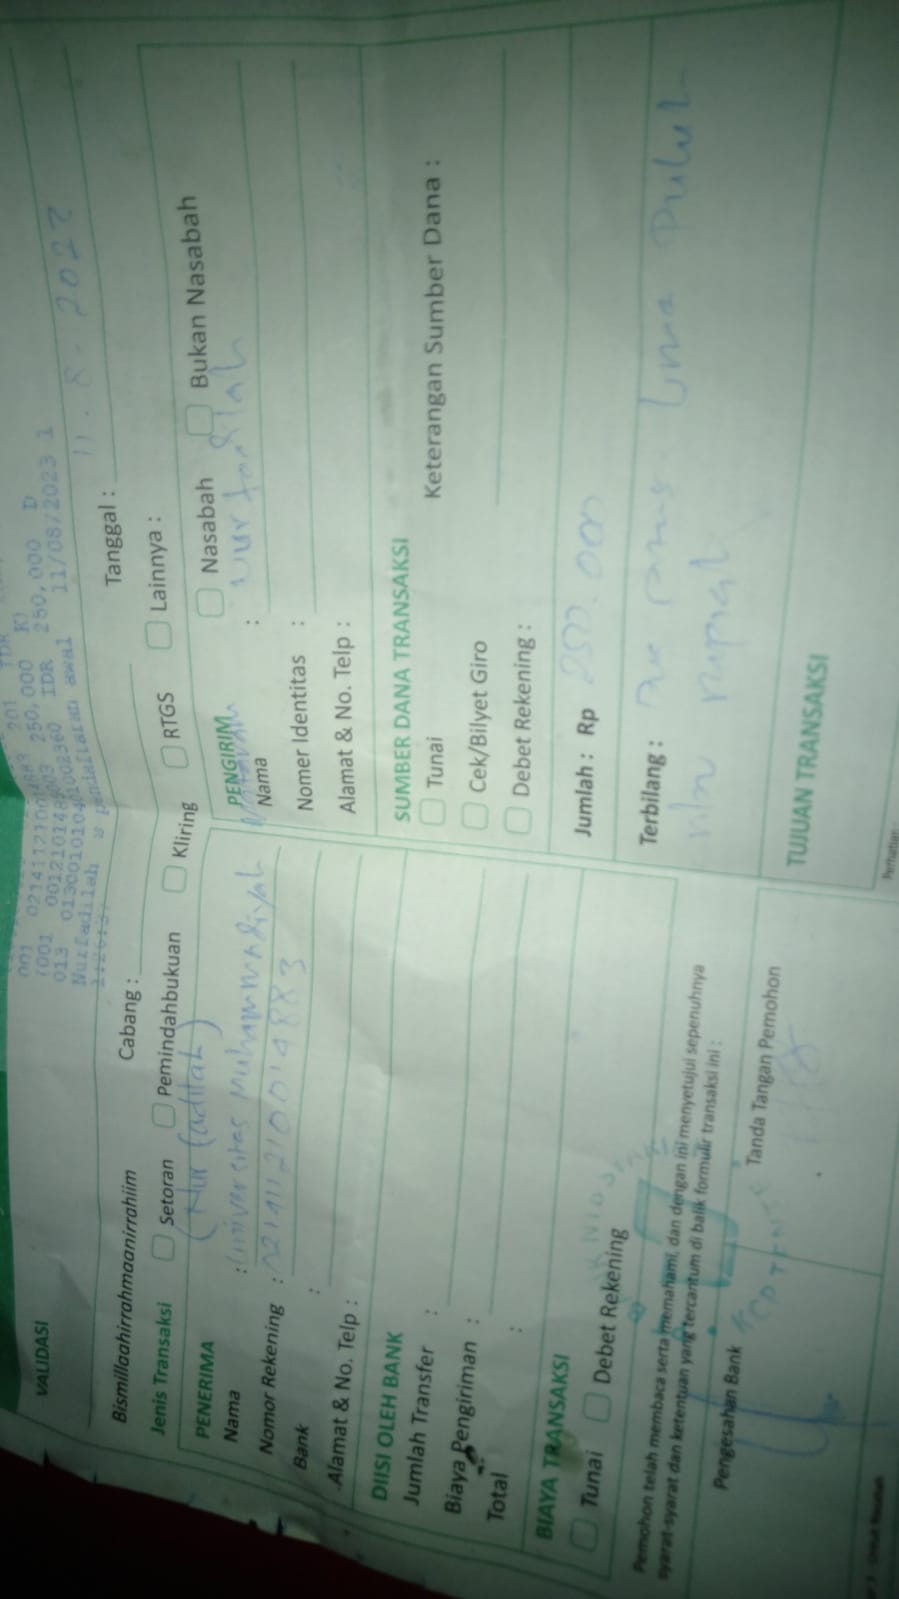 VALIDASI
001 021411210014883 201 IDR
(001 001210148003 250,000 K)
013 013001010401002360 IDR 250,000 D
Nurfadilah pendaftaran awal 11/08/2023 1
Bismillaahirrahmaanirrahiim
Cabang :
Tanggal : 11. 8. 2022
Jenis Transaksi Setoran Pemindahbukuan Kliring RTGS Lainnya :
(Nur fadilah)
PENERIMA
Nama : Universitas Muhammadiyah
Nomor Rekening : 0214112100014883
Bank :
Alamat & No. Telp :
PENGIRIM Nasabah Bukan Nasabah
Nama : Nurfadilah
Nomer Identitas :
Alamat & No. Telp :
DIISI OLEH BANK
Jumlah Transfer :
Biaya Pengiriman :
Total :
SUMBER DANA TRANSAKSI
Tunai Keterangan Sumber Dana :
Cek/Bilyet Giro
Debet Rekening :
BIAYA TRANSAKSI
Tunai Debet Rekening
Jumlah : Rp 250.000
Terbilang : Dua ratus lima puluh
ribu rupiah
Pemohon telah membaca serta memahami, dan dengan ini menyetujui sepenuhnya
syarat-syarat dan ketentuan yang tercantum di balik formulir transaksi ini :
Pengesahan Bank Tanda Tangan Pemohon
TUJUAN TRANSAKSI